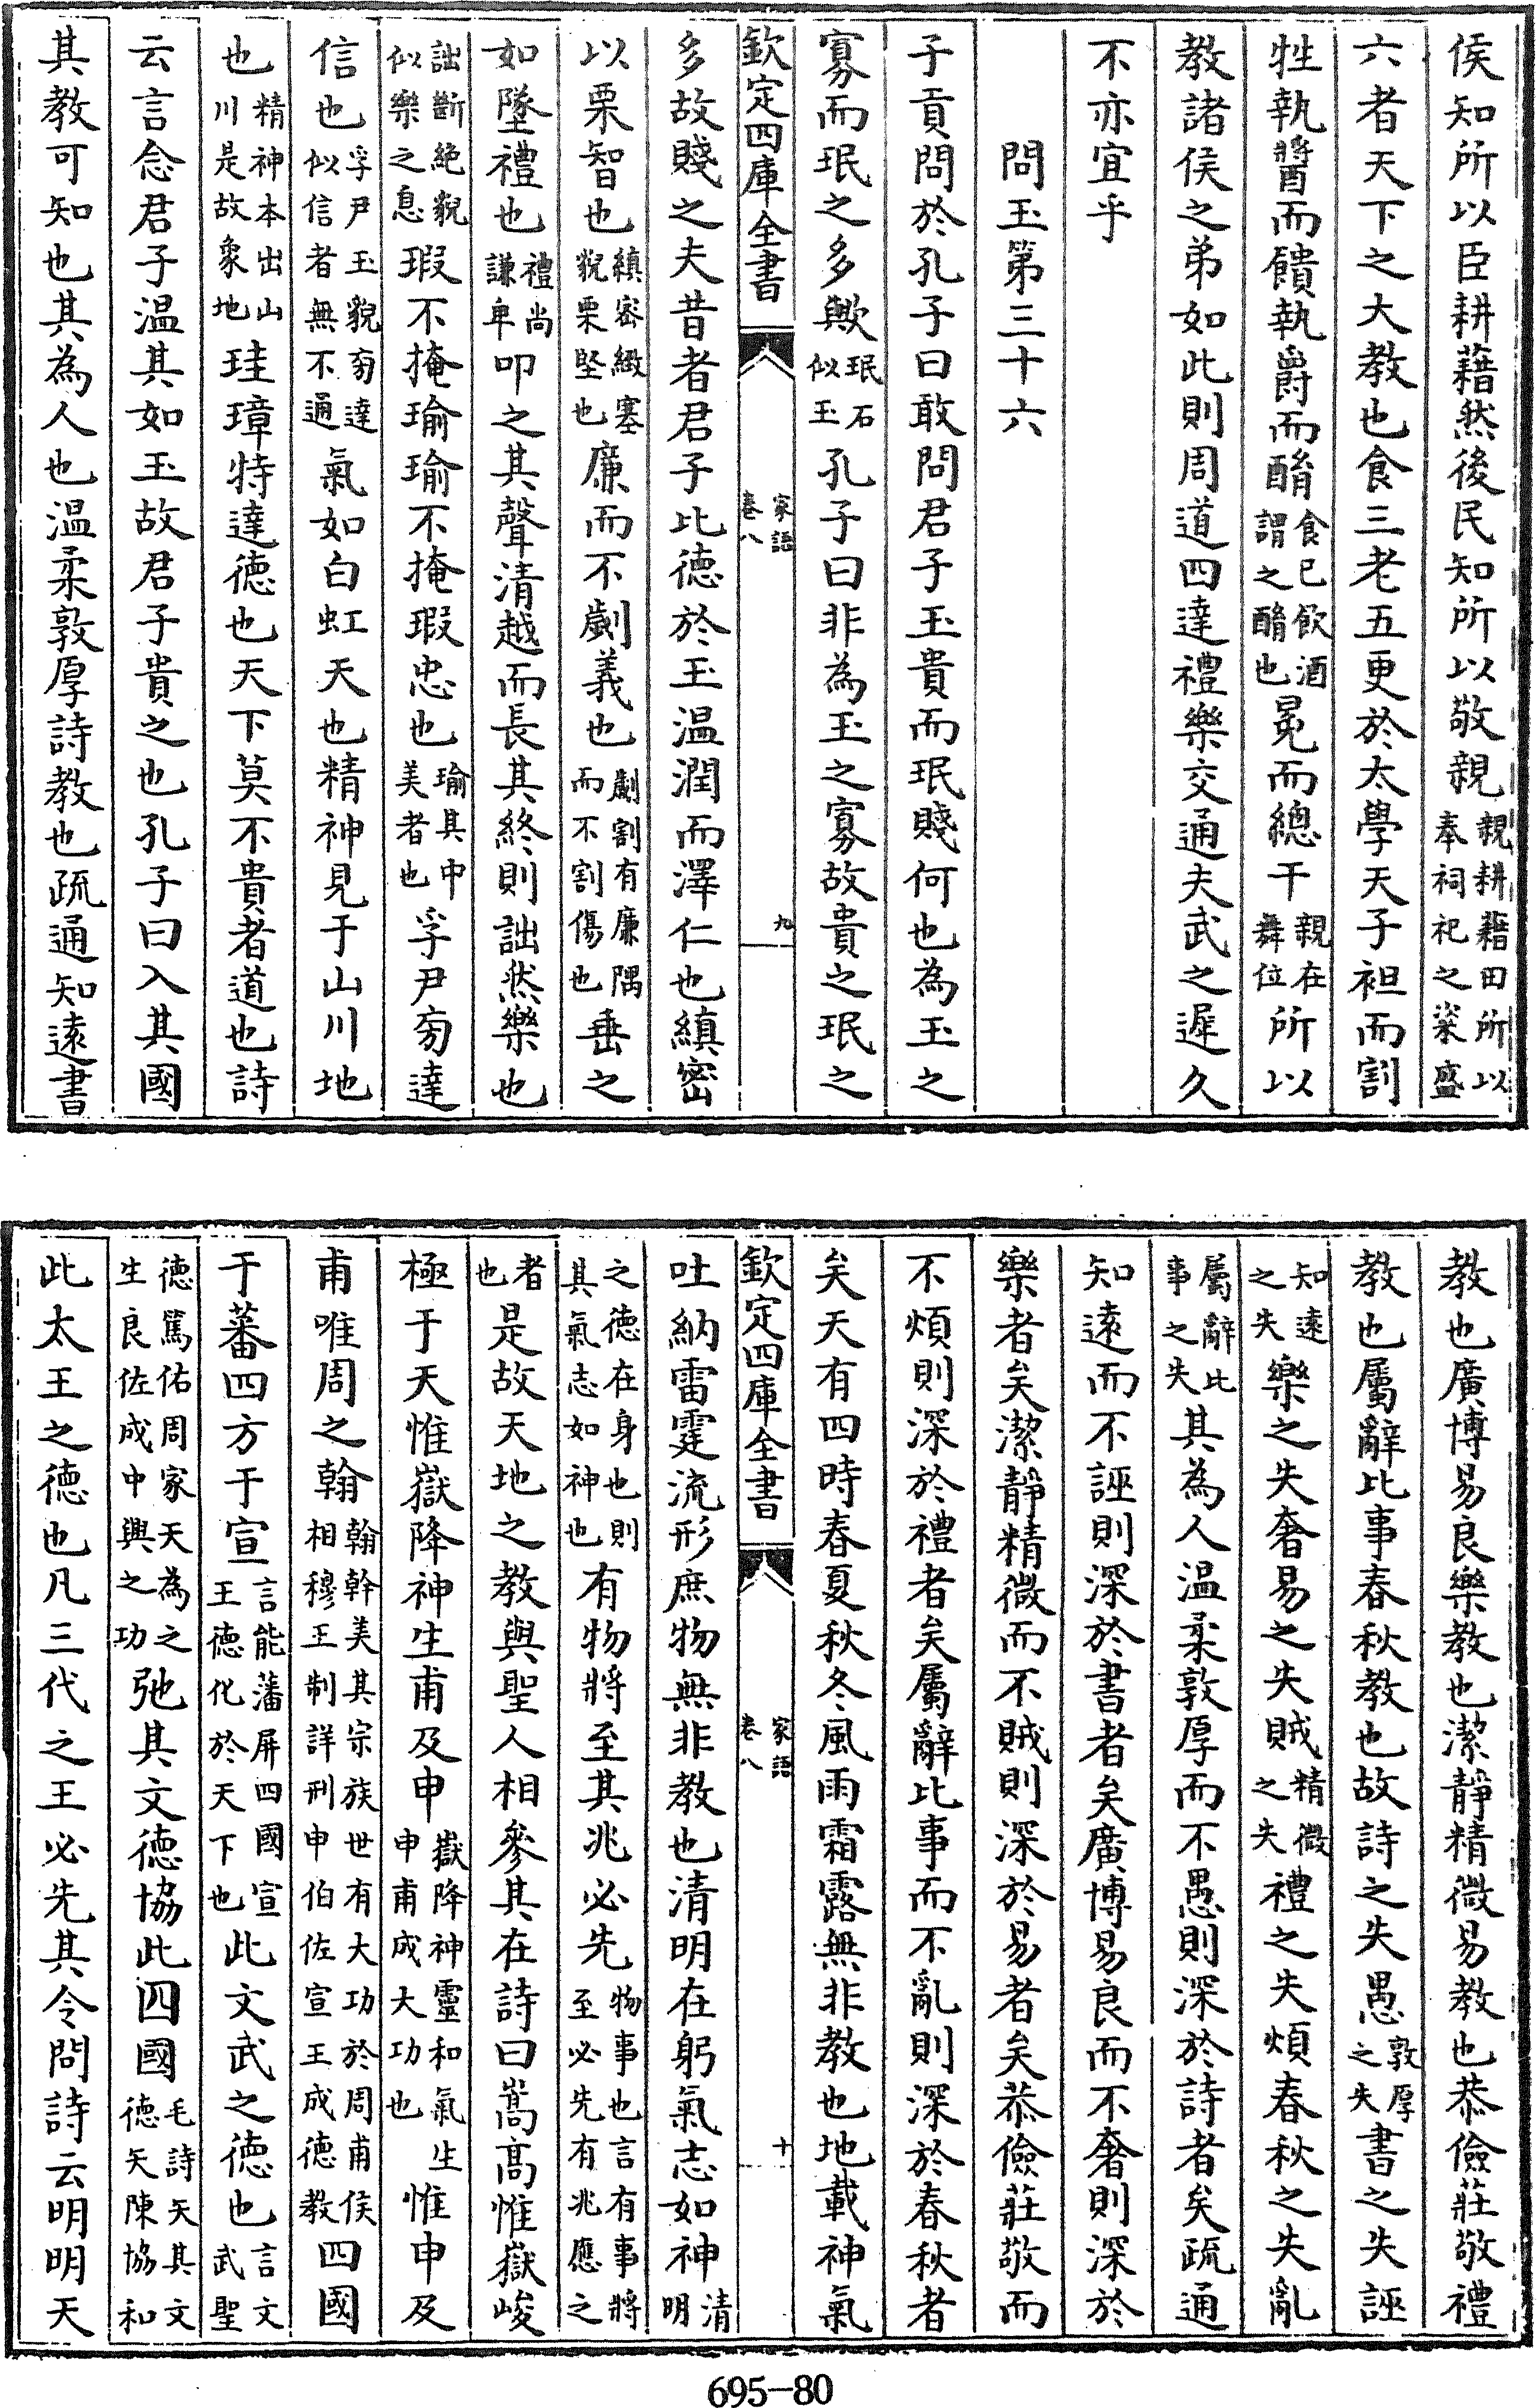 侯知所以臣耕藉然後民知所以敬親親耕藉田所以奉祠祀之粢盛
六者天下之大教也食三老五更於太學天子袒而割
牲執醬而饋執爵而酳食已飲酒謂之酳也冕而總干親在舞位所以
教諸侯之弟如此則周道四達禮樂交通夫武之遲久
不亦宜乎
問玉第三十六
子貢問於孔子曰敢問君子玉貴而珉賤何也為玉之
寡而珉之多歟珉石似玉孔子曰非為玉之寡故貴之珉之
欽定四庫全書 家語卷八 九
多故賤之夫昔者君子比德於玉温潤而澤仁也縝密
以栗智也縝密緻塞貌栗堅也廉而不劌義也劌割有廉隅而不割傷也垂之
如墜禮也禮尚謙卑叩之其聲清越而長其終則詘然樂也
詘斷絶貌似樂之息瑕不掩瑜瑜不掩瑕忠也瑜其中美者也孚尹旁達
信也孚尹玉貌旁達似信者無不通氣如白虹天也精神見于山川地
也精神本出山川是故象地珪璋特達德也天下莫不貴者道也詩
云言念君子温其如玉故君子貴之也孔子曰入其國
其教可知也其為人也温柔敦厚詩教也疏通知遠書
教也廣博易良樂教也潔靜精微易教也恭儉莊敬禮
教也屬辭比事春秋教也故詩之失愚敦厚之失書之失誣
知遠之失樂之失奢易之失賊精微之失禮之失煩春秋之失亂
屬辭比事之失其為人温柔敦厚而不愚則深於詩者矣疏通
知遠而不誣則深於書者矣廣博易良而不奢則深於
樂者矣潔靜精微而不賊則深於易者矣恭儉莊敬而
不煩則深於禮者矣屬辭比事而不亂則深於春秋者
矣天有四時春夏秋冬風雨霜露無非教也地載神氣
欽定四庫全書 家語卷八 十
吐納雷霆流形庶物無非教也清明在躬氣志如神清明
之德在身也則其氣志如神也有物將至其兆必先物事也言有事將至必先有兆應之
者也是故天地之教與聖人相參其在詩曰嵩高惟嶽峻
極于天惟嶽降神生甫及申嶽降神靈和氣生申甫成大功也惟申及
甫唯周之翰翰幹美其宗族世有大功於周甫侯相穆王制詳刑申伯佐宣王成德教四國
于蕃四方于宣言能藩屏四國宣王德化於天下也此文武之德也言文武聖
德篤佑周家天為之生良佐成中興之功弛其文德協此四國毛詩矢其文德矢陳協和
此太王之德也凡三代之王必先其令問詩云明明天
695-80